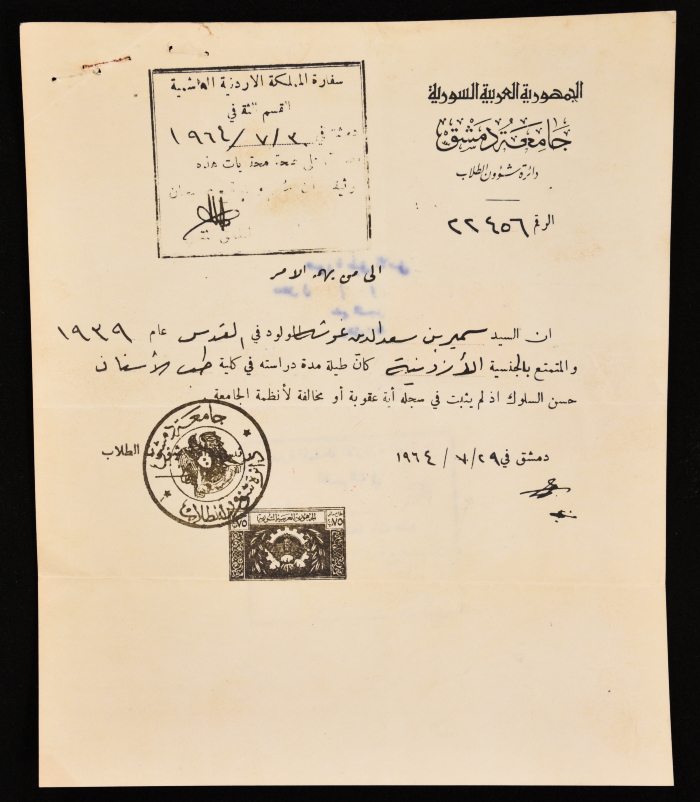 الجمهورية العربية السورية
جامعة دمشق
دائرة شؤون الطلاب
الرقم ٢٢٤٥٦
سفارة المملكة الاردنية الهاشمية
القسم
دمشق في ٣٠/٧/١٩٦٤
على صحة محتويات هذه
الى من يهمه الامر
ان السيد سمير بن سعد الدين غوشه المولود في القدس عام ١٩٣٩
والمتمتع بالجنسية الأردنية كان طيلة مدة دراسته في كلية طب الأسنان
حسن السلوك اذ لم يثبت في سجله أية عقوبة أو مخالفة لأنظمة الجامعة.
دمشق في ٢٩/٧/١٩٦٤
الطلاب
جامعة دمشق
دائرة شؤون الطلاب
الجمهورية العربية السورية
٧٥
٧٥